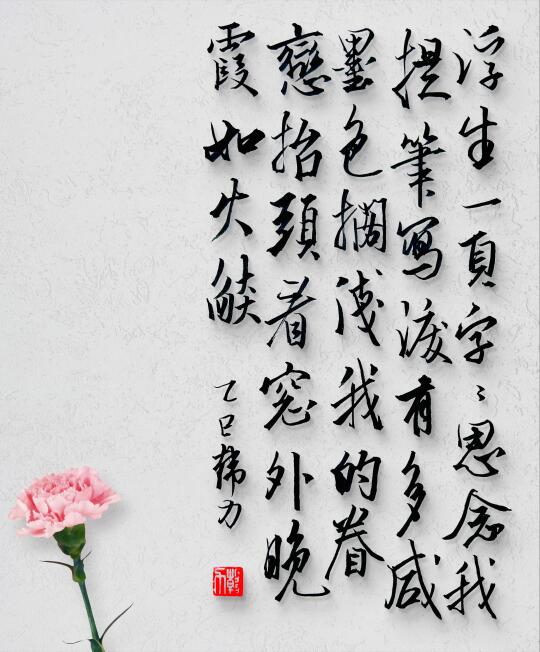 浮生一頁字〻思念我
提筆寫淚有多咸
墨色擱淺我的眷
戀抬頭看窓外晚
霞如火燄
乙巳韩力